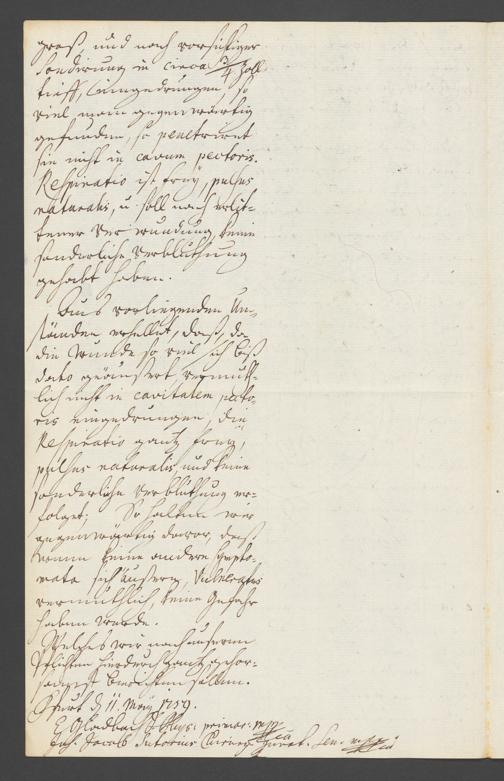 groß, und nach vorsichtiger
Sondirung in circa 3/4 Zoll
tieff, eingedrungen, so
viel man gegenwärtig
gefunden, so penetriret
sie nicht in cavum pectoris.
Respiratio ist frey, pulsus
naturalis, u. soll nach erlit-
tener Verwundung, keine
sonderliche Verbluthung
gehabt haben.
Aus vorliegenden Um-
ständen erhellet, daß, da
die Wunde so viel sich biß
dato geäussert vermuth-
lich nicht in cavitatem pecto-
ris eingedrungen, die
Respiratio gantz frey,
pulsus naturalis, und keine
sonderliche Verbluthung er-
folget; So halten wir
gegenwärtig davor, daß
wenn keine andere Sympto-
mata sich äussern, Vulneratus
vermuthlich, keine Gefahr
haben werde.
Welches wir nach unseren
Pflichten hierdurch gantz gehor-
samst berichten sollen.
d 11. May 1759.
Gladbach Phys: primar: mpp
Joh. Jacob Chirurg. Jurat. Sen. mppria